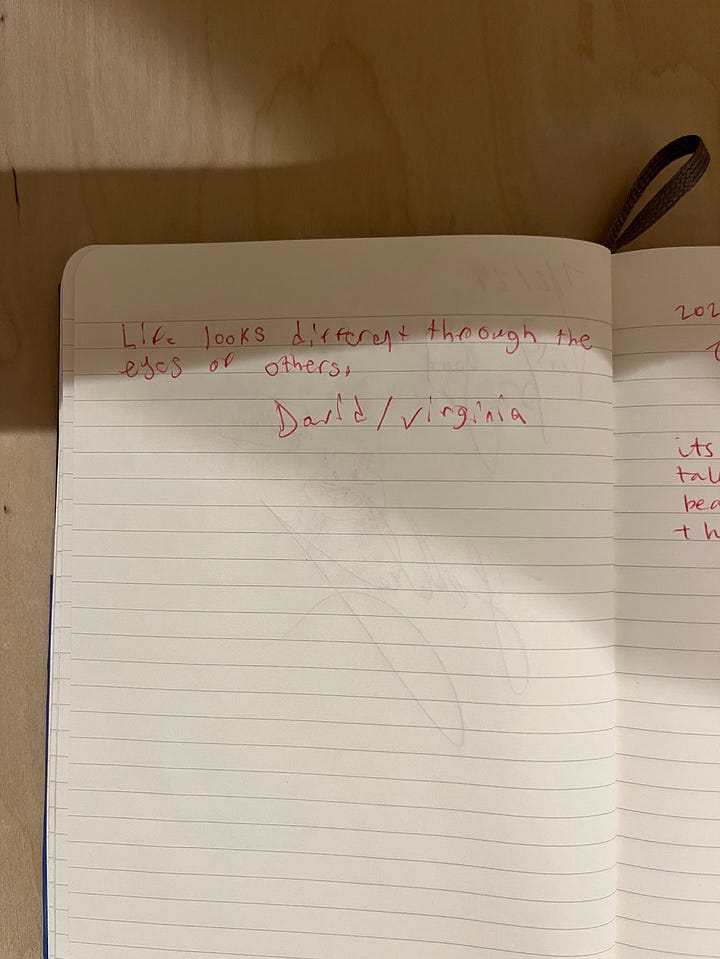 Life looks different through the
eyes of others,
David/Virginia
202
its
tal
bea
th